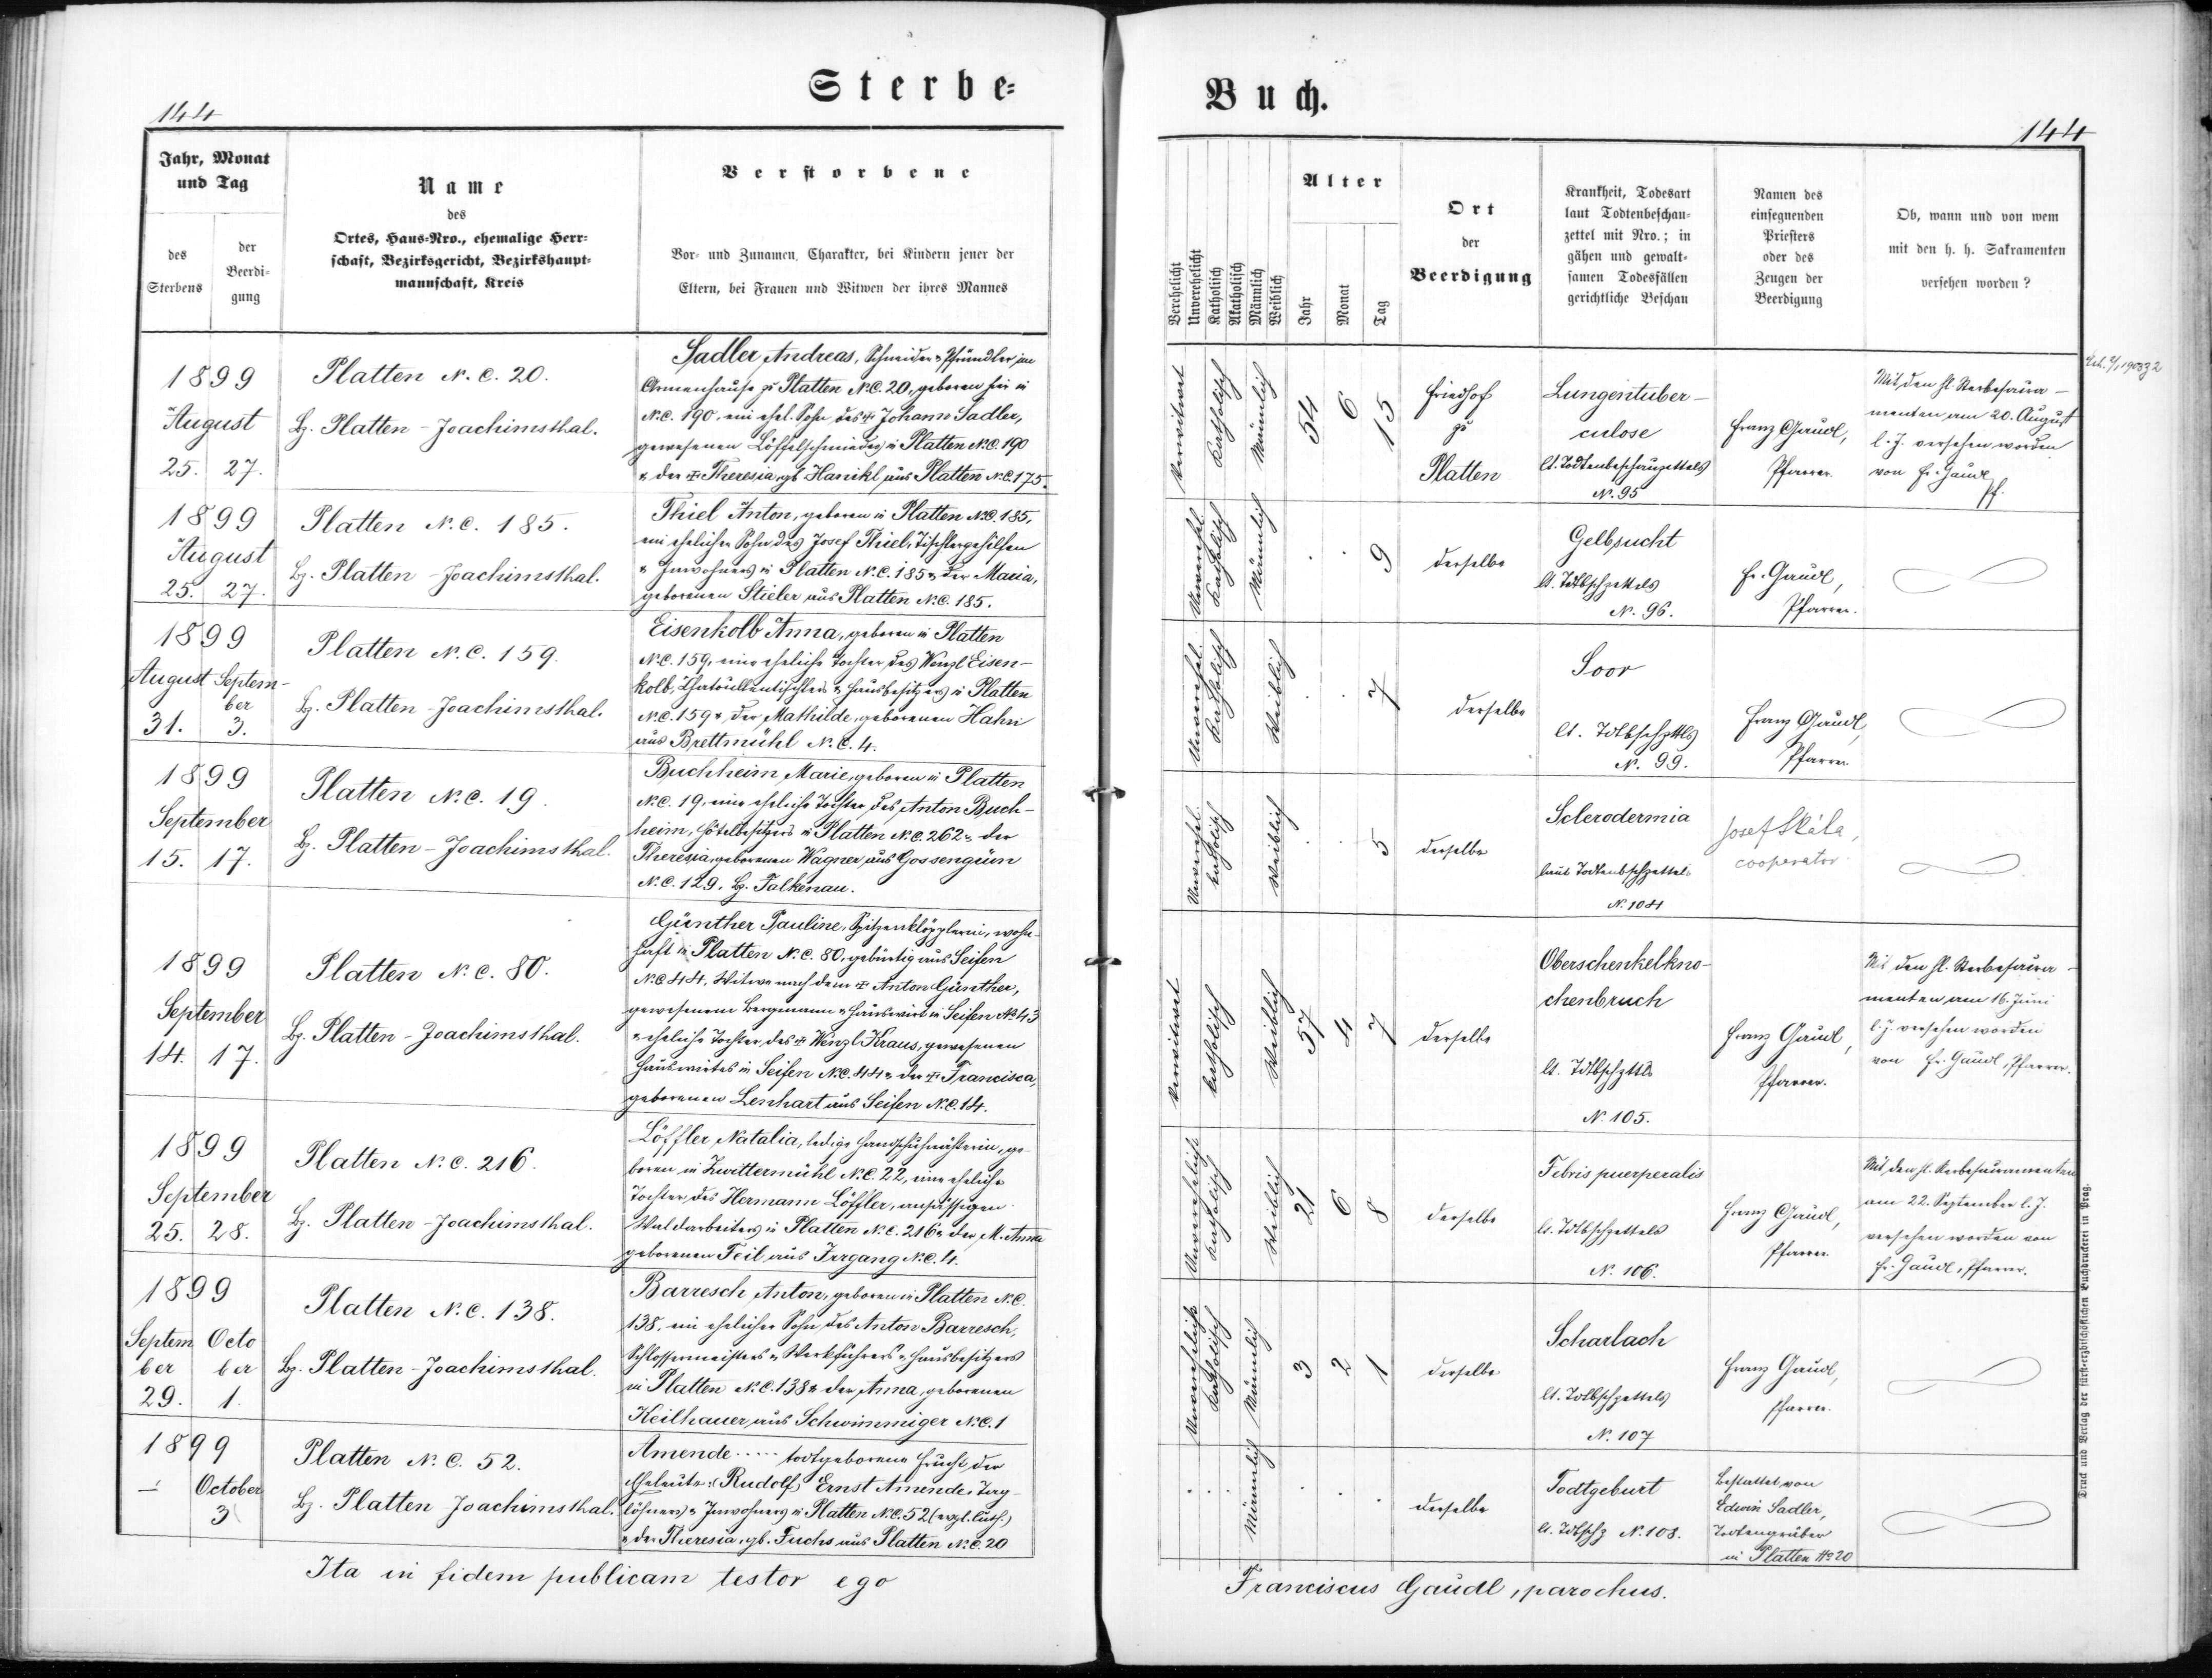 Sterbe=
Buch.
144
144
Jahr, Monat
und Tag
des
Sterbens
der
Beerdi=
gung
Name
des
Ortes, Haus=Nro., ehemalige Herr=
schaft, Bezirksgericht, Bezirkshaupt=
mannschaft, Kreis
Verstorbene
Vor= und Zunamen, Charakter, bei Kindern jener der
Eltern, bei Frauen und Witwen der ihres Mannes
Verehelicht
Unverehelicht
Katholisch
Akatholisch
Männlich
Weiblich
Alter
Jahr
Monat
Tag
Ort
der
Beerdigung
Krankheit, Todesart
laut Todtenbeschau=
zettel mit Nro.; in
gähen und gewalt=
samen Todesfällen
gerichtliche Beschau
Namen des
einsegnenden
Priesters
oder des
Zeugen der
Beerdigung
Ob, wann und von wem
mit den h. h. Sakramenten
versehen worden?
1899
August
25. 27.
Platten N. C. 20.
Bz. Platten - Joachimsthal.
Sadler Andreas, Schneider & Pfründler im
Armenhause zu Platten N.C. 20, geboren hier in
N.C. 190, ein ehel. Sohn des + Johann Sadler,
gewesenen Löffelschmiedes in Platten N.C. 190
& der + Theresia, gb. Hanikl aus Platten N.C. 175.
Verwitwet
Katholisch
Männlich
54 6 15
Friedhof
zu
Platten
Lungentuber-
culose
lt. Todtenbeschauzettels
N. 95
Franz Gaudl,
Pfarrer.
Mit den hl. Sterbesacra-
menten am 20. August
l. J. versehen worden
von Fr. Gaudl
Pf.
1899
August
25. 27.
Platten N. C. 185.
Bz. Platten - Joachimsthal.
Thiel Anton, geboren in Platten N.C. 185,
ein ehelicher Sohn des Josef Thiel, Tischlergehilfen
& Inwohners in Platten N.C. 185 & der Maria,
geborenen Stieler aus Platten N.C. 185.
Unverehel.
Katholisch
Männlich
9
derselbe
Gelbsucht
lt. Tdtbschzettels
N. 96.
Fr. Gaudl,
Pfarrer.
1899
August Septem-
ber
31. 3.
Platten N. C. 159.
Bz. Platten - Joachimsthal.
Eisenkolb Anna, geboren in Platten
N.C. 159, eine eheliche Tochter des Wenzl Eisen-
kolb, Chatoullentischlers & Hausbesitzers in Platten
N.C. 159 & der Mathilde, geborenen Hahn
aus Brettmühl N. C. 4.
Unverehel.
Katholisch
Weiblich
7
derselbe
Soor
lt. Tdtbschzttls
N. 99.
Franz Gaudl,
Pfarrer.
1899
September
15. 17.
Platten N. C. 19.
Bz. Platten - Joachimsthal.
Buchheim Marie, geboren in Platten
N.C. 19, eine eheliche Tochter des Anton Buch-
heim, Hôtelbesitzers in Platten N.C. 262 & der
Theresia, geborenen Wagner aus Gossengün
N.C. 129, Bz. Falkenau.
Unverehel.
katholisch
Weiblich
5
derselbe
Sclerodermia
laut Todtenbschzettels
N. 104
Josef Skála,
cooperator.
1899
September
14. 17.
Platten N. C. 80.
Bz. Platten - Joachimsthal.
Günther Pauline, Spitzenklöpplerin, wohn-
haft in Platten N. C. 80, gebürtig aus Seifen
N.C. 44, Witwe nach dem + Anton Günther,
gewesenem Bergmann & Hauswirt in Seifen N. 43
& eheliche Tochter des + Wenzl Kraus, gewesenen
Hauswirtes in Seifen N.C. 44 & der + Francisca,
geborenen Lenhart aus Seifen N.C. 14.
Verwitwet
katholisch
Weiblich
57 4 7
derselbe
Oberschenkelkno-
chenbruch
lt. Tdtbschzttls
N. 105.
Franz Gaudl,
Pfarrer.
Mit den hl. Sterbesacra-
menten am 16. Juni
l. J. versehen worden
von Fr. Gaudl, Pfarrer.
1899
September
25. 28.
Platten N. C. 216.
Bz. Platten - Joachimsthal.
Löffler Natalia, ledige Handschuhnätherin, ge-
boren in Zwittermühl N.C. 22, eine eheliche
Tochter des Hermann Löffler, ansässigen
Waldarbeiters in Platten N.C. 216 & der M. Anna
geborenen Teil aus Irrgang N.C. 4.
Unverehelicht
Katholisch
Weiblich
21 6 8
derselbe
Febris puerperalis
lt. Tdtbschzettels
N. 106.
Franz Gaudl,
Pfarrer.
Mit den hl. Sterbesacramenten
am 22. September l. J.
versehen worden von
Fr. Gaudl, Pfarrer.
1899
Septem Octo
ber ber
29. 1.
Platten N. C. 138.
Bz. Platten - Joachimsthal.
Barresch Anton, geboren in Platten N.C.
138, ein ehelicher Sohn des Anton Barresch,
Schlossermeisters & Werkführers & Hausbesitzers
in Platten N.C. 138 & der Anna, geborenen
Keilhauer aus Schwimmiger N.C. 1
Unverehelicht
Katholisch
Männlich
3 2 1
derselbe
Scharlach
lt. Tdtbschzettels
N. 107
Franz Gaudl,
Pfarrer.
1899
- October
3
Platten N. C. 52.
Bz. Platten Joachimsthal.
Amende ..... todtgeborene Frucht der
Eheleute: Rudolf Ernst Amende, Tag-
löhners & Inwohners in Platten N.C. 52 (evgl. luth.)
& der Theresia, gb. Fuchs aus Platten N.C. 20
Männlich
derselbe
Todtgeburt
lt. Tdtbschz N. 108.
Bestattet von
Edwin Sadler,
Todtengräber
in Platten No 20
Ita in fidem publicam testor ego
Franciscus Gaudl, parochus.
Druck und Verlag der fürst-erzbischöflichen Buchdruckerei in Prag.